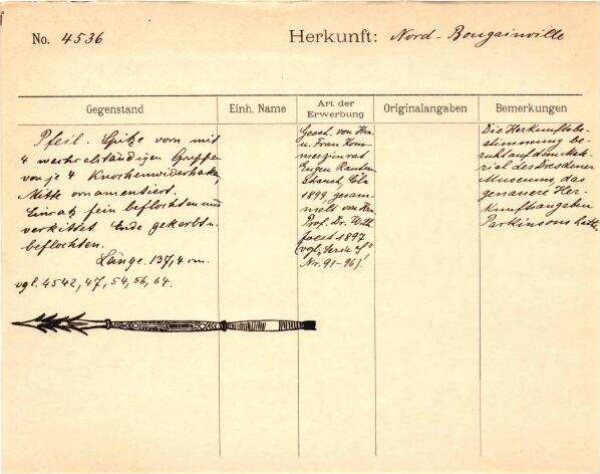 No. 4536
Herkunft: Nord-Bougainville
Gegenstand
Einh. Name
Art der Erwerbung
Originalangaben
Bemerkungen
Pfeil. Spitze vorn mit
4 wechselständigen Gruppen
von je 4 Knochenwiderhaken,
Mitte ornamentiert.
Einsatz fein beflochten und
verkittet Ende gekerbt u.
beflochten.
Länge. 137,4 cm.
vgl. 4542, 47, 54, 56, 64.
Gesch. von Hrn.
u. Frau Kom-
merzienrat
Eugen Rauten-
strauch, Cöln
1899, gesam-
melt von Hrn.
Prof. Dr. W.
foest 1897
(vgl. "Serie S"
Nr. 91-96)!
Die Herkunftsbe-
stimmung be-
ruht auf dem Mate-
rial des Dresdener
Museums, das
genauere Her-
kunftsangaben
Parkinsons hatte.